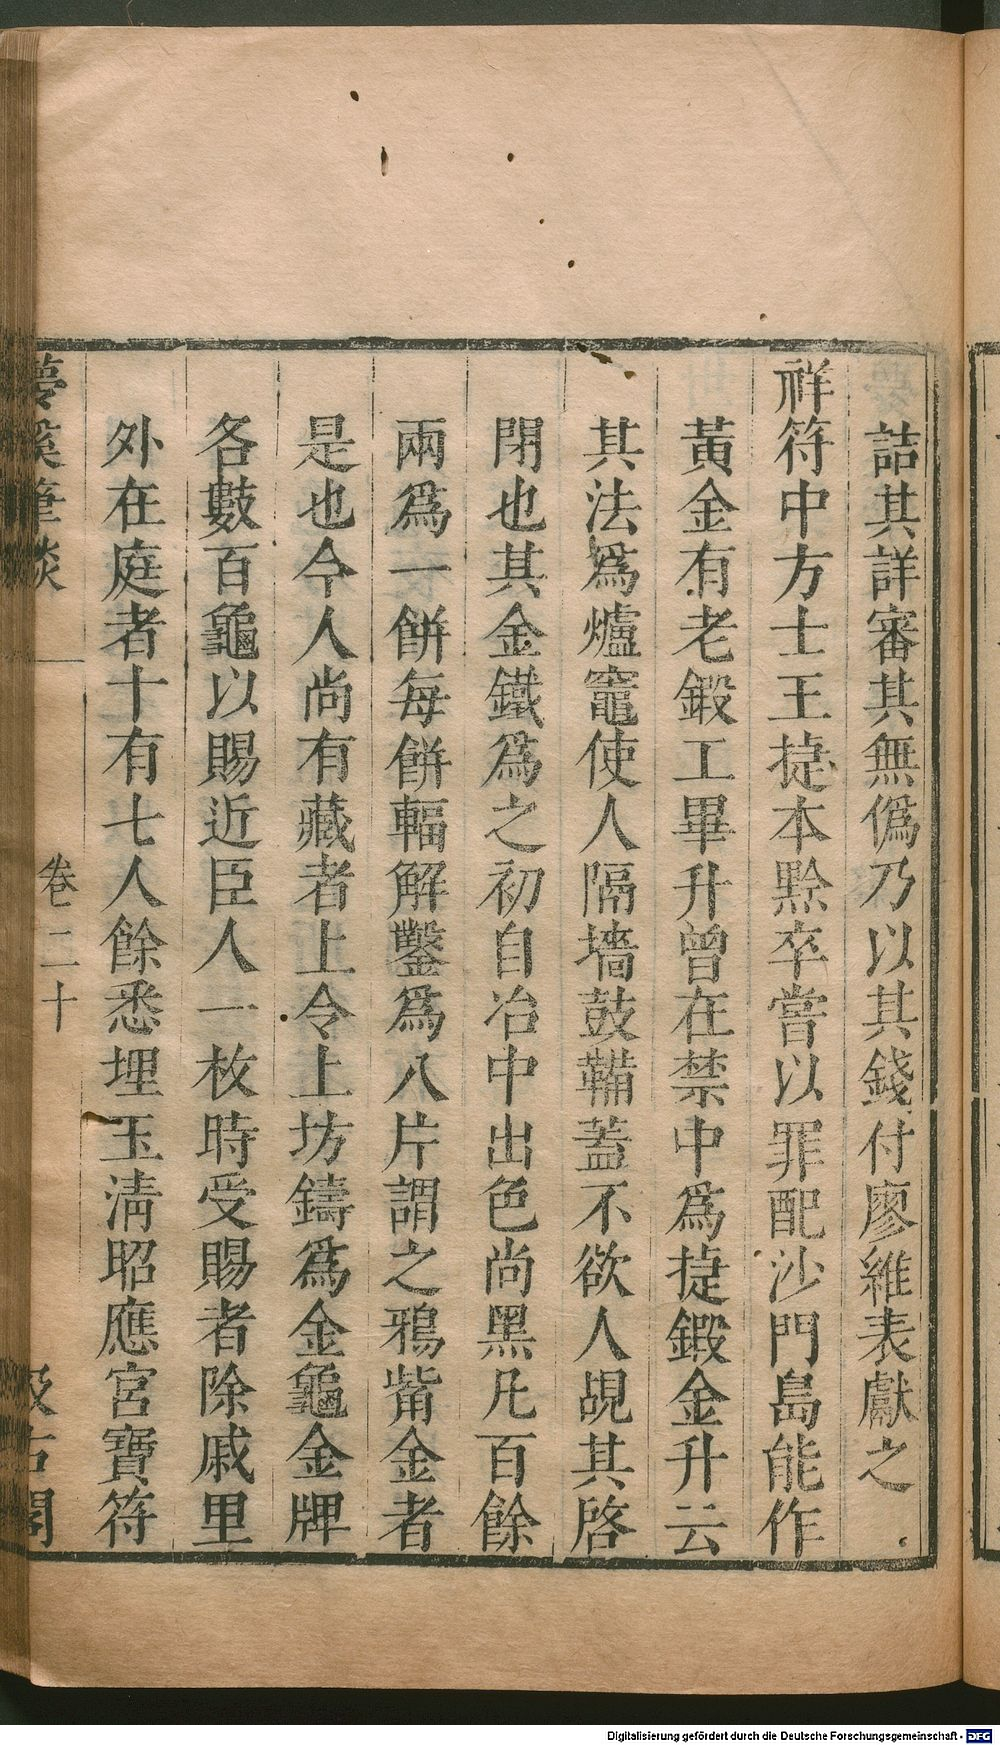 詰其詳審其無僞乃以其錢付廖維表獻之
祥符中方士王捷本黥卒嘗以罪配沙門島能作
黃金有老鍛工畢升曾在禁中爲捷鍛金升云
其法爲爐竈使人隔墻鼓鞴蓋不欲人覘其啓
閉也其金鐵爲之初自冶中出色尚黑凡百餘
兩爲一餅每餅輻解鑿爲八片謂之鴉觜金者
是也今人尚有藏者上令上坊鑄爲金龜金牌
各數百龜以賜近臣人一枚時受賜者除戚里
外在庭者十有七人餘悉埋玉淸昭應宮寶符
夢溪筆談
卷二十
汲古閣
Digitalisierung gefördert durch die Deutsche Forschungsgemeinschaft - DFG